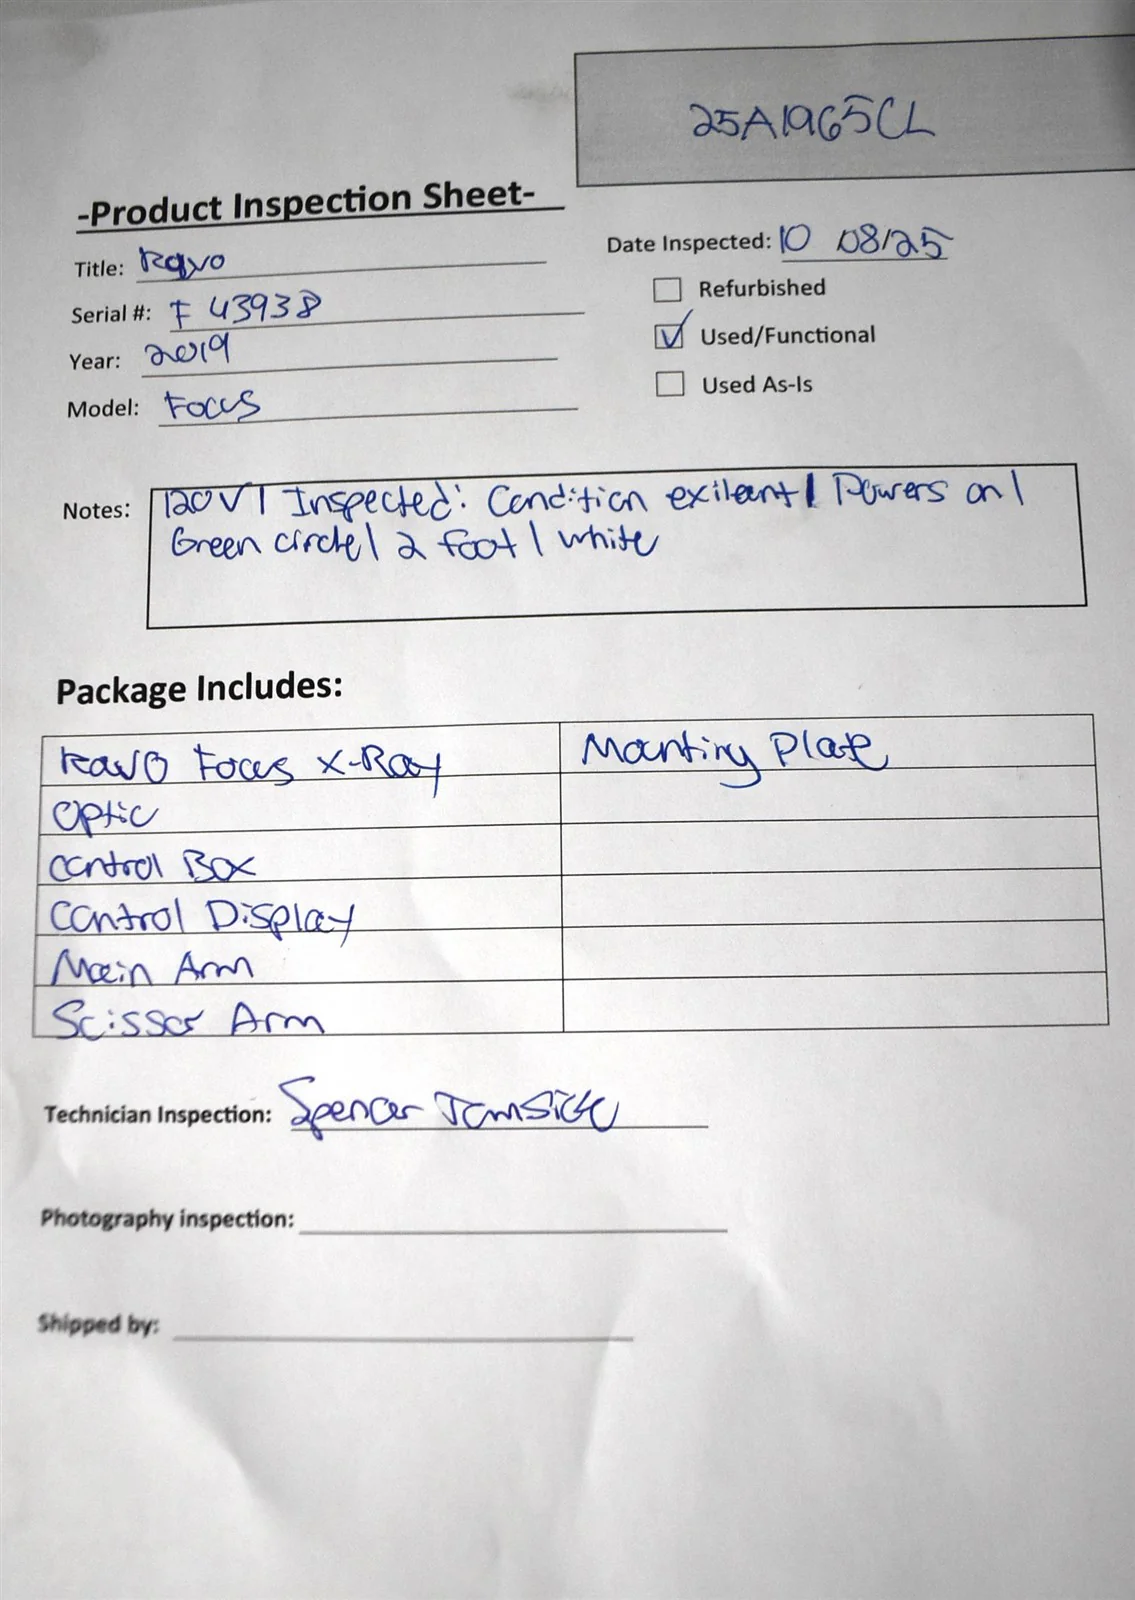 25A1965CL
-Product Inspection Sheet-
Title: Kavo
Date Inspected: 10 08/25
Serial #: F 43938
Refurbished
Year: 2019
Used/Functional
Model: Focus
Used As-Is
Notes: 120V | Inspected: Condition exileant | Powers on |
Green circle | 2 foot | white
Package Includes:
Kavo Focus X-Ray
Mounting Plate
Optic
Control Box
Control Display
Main Arm
Scissor Arm
Technician Inspection: Spencer
Photography inspection:
Shipped by: